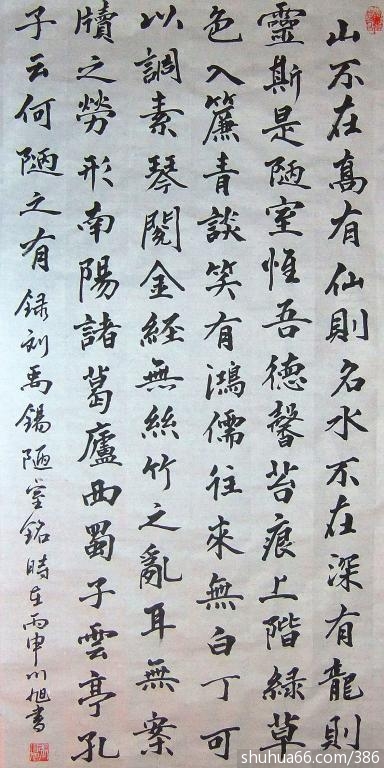 山不在高有仙則名水不在深有龍則
靈斯是陋室惟吾德馨苔痕上階緑草
色入簾青談笑有鴻儒往來無白丁可
以調素琴閱金經無絲竹之亂耳無案
牘之勞形南陽諸葛廬西蜀子雲亭孔
子云何陋之有 録刘禹錫陋室銘時在丙申川旭書
shuhua66.com/386